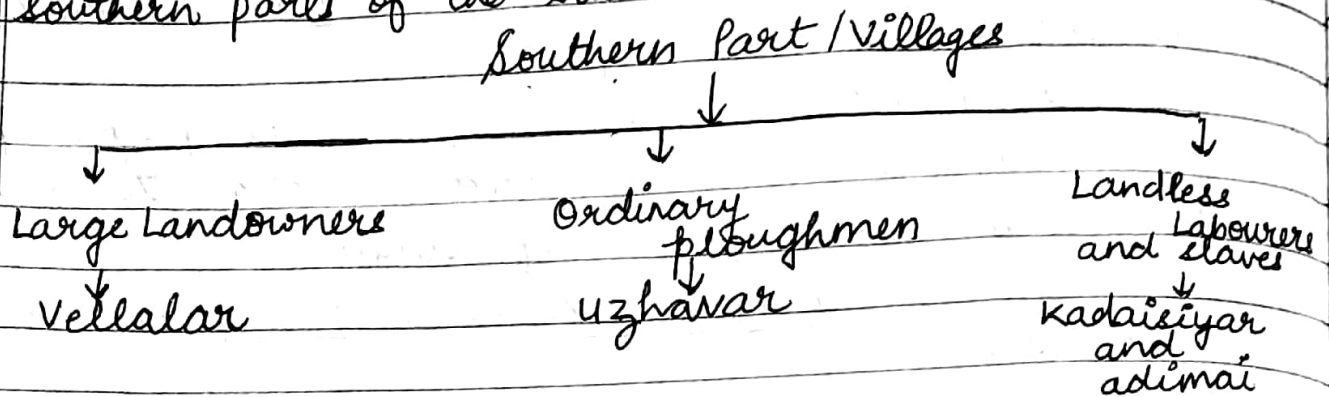 southern parts of the
Southern Part / Villages
Large Landowners
Vellalar
Ordinary
ploughmen
uzhavar
Landless
Labourers
and slaves
kadaisiyar
and
adimai